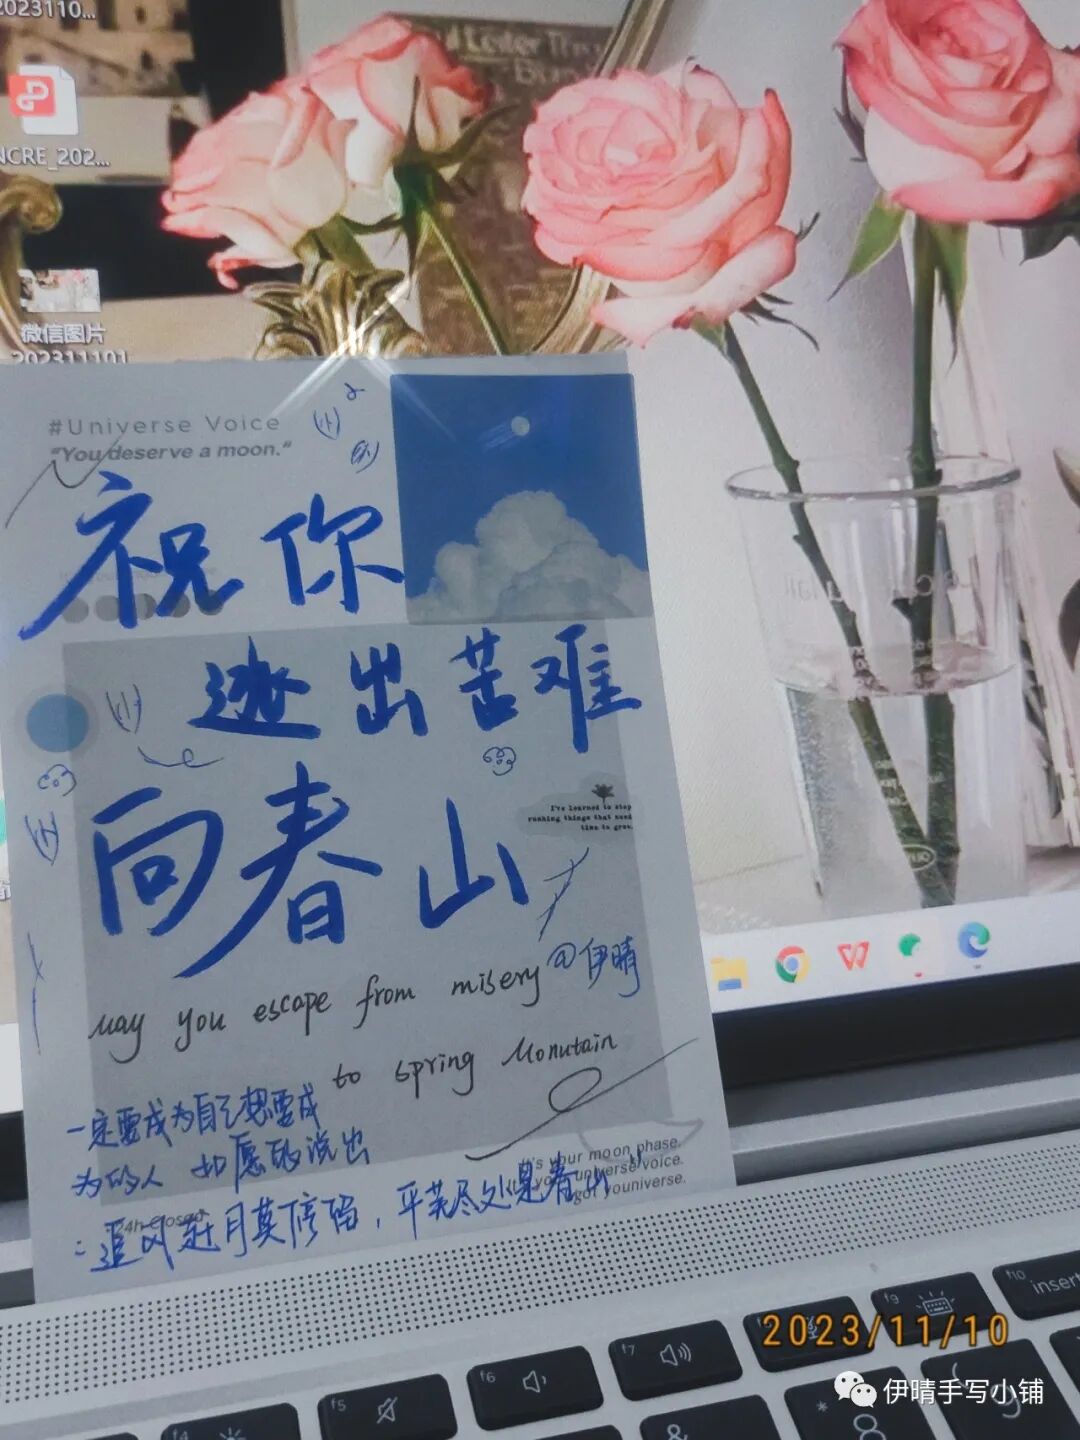 2023110...
NCRE_202...
微信图片
202311101
#Universe Voice
"You deserve a moon."
祝你
逃出苦难
向春山
I've learned to stop
rushing things that need
time to grow.
@伊晴
may you escape from misery
to spring Monutain
一定要成为自己想要成
为的人 如愿的说出
"追风赶月莫停留，平芜尽处是春山"
It's your moon phase.
It's your universe voice.
got youniverse.
f5
f6
f7
f9
f10
insert
&
*
8
(
9
2023/11/10
伊晴手写小铺